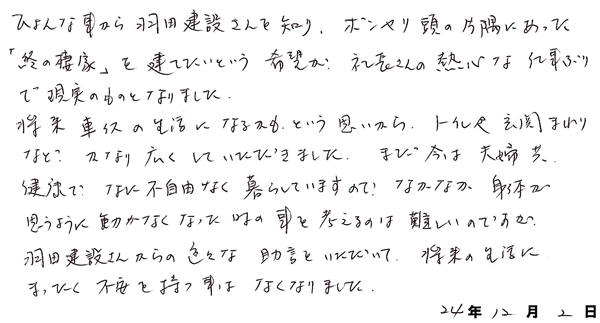 ひょんな事から羽田建設さんを知り、ボンヤリ頭の片隅にあった
「終の棲家」を建てたいという希望が、社長さんの熱心な仕事ぶり
で現実のものとなりました。
将来車イスの生活になるかも、という思いから、トイレや玄関まわり
などかなり広くしていただきました。まだ今は夫婦共
健康で、なに不自由なく暮らしていますので、なかなか身体が
思うように動かなくなった時の事を考えるのは難しいのですが、
羽田建設さんからの色々な助言をいただいて、将来の生活に
まったく不安を持つ事はなくなりました。
24年12月2日